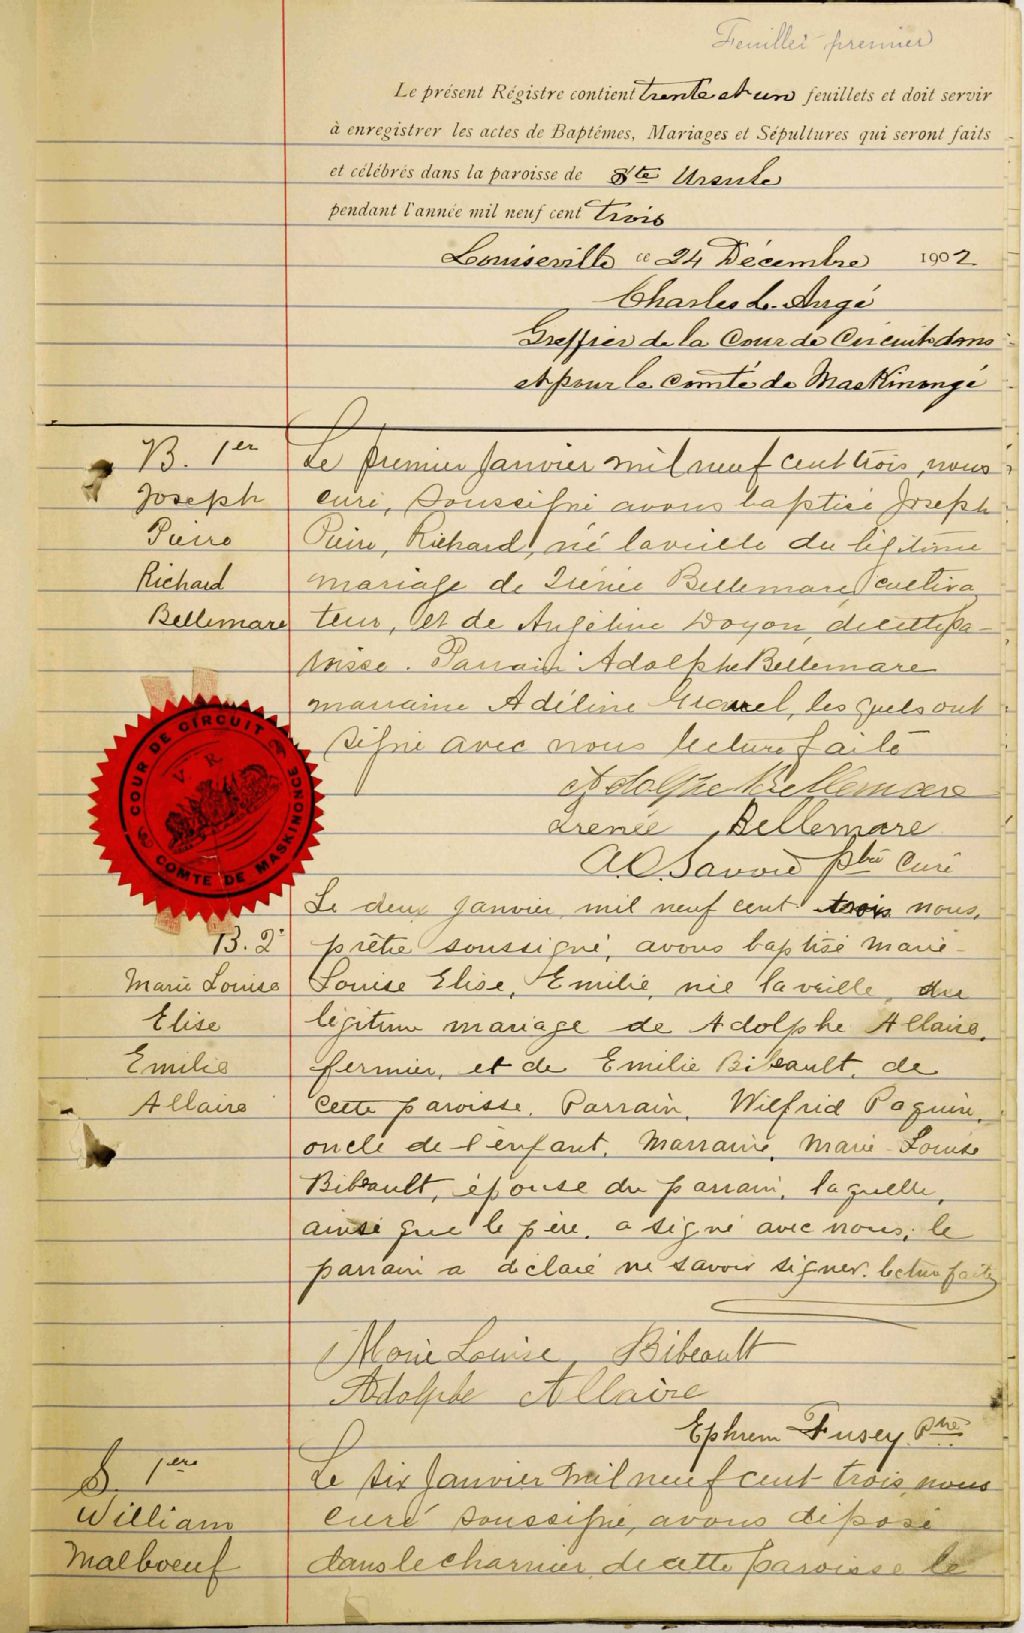 Feuillet premier
Le présent Régistre contient trente et un feuillets et doit servir
à enregistrer les actes de Baptêmes, Mariages et Sépultures qui seront faits
et célébrés dans la paroisse de Ste Ursule
pendant l'année mil neuf cent trois
Louiseville ce 24 Décembre 1902
Charles L. Angé
Greffier de la Cour de Circuit dans
et pour le comté de Maskinongé
B. 1er
Joseph
Pierre
Richard
Bellemare
Le premier Janvier mil neuf cent trois, nous
curé, soussigné avons baptisé Joseph
Pierre, Richard, né la veille du légitime
mariage de Irénée Bellemare, cultiva
teur, et de Angéline Doyon, de cette pa-
roisse. Parrain Adolphe Bellemare
marraine Adéline Gravel, lesquels ont
signé avec nous lecture faite
Adolphe Bellemare
Irenée Bellemare
A.O. Savoie ptre Curé
COUR DE CIRCUIT
V R
COMTÉ DE MASKINONGE
B. 2e
Marie Louise
Elise
Emilie
Allaire
Le deux janvier mil neuf cent trois nous,
prêtre soussigné, avons baptisé Marie-
Louise Elise, Emilie, née la veille, du
légitime mariage de Adolphe Allaire,
fermier, et de Emilie Bibeault, de
cette paroisse. Parrain, Wilfrid Paquin,
oncle de l'enfant, Marraine, Marie-Louise
Bibeault, épouse du parrain, laquelle,
ainsi que le père, a signé avec nous; le
parrain a déclaré ne savoir signer. lecture faite
Marie Louise Bibeault
Adolphe Allaire
Ephrem Fusey Ptre
S. 1ere
William
Malboeuf
Le six Janvier mil neuf cent trois, nous
curé soussigné, avons déposé
dans le charnier de cette paroisse le